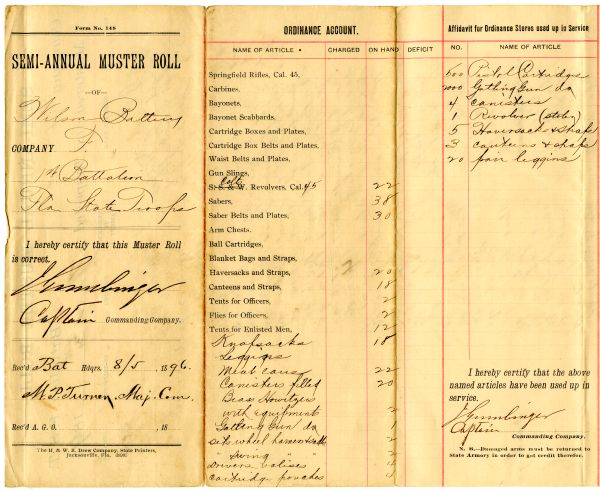 Form No. 148
SEMI-ANNUAL MUSTER ROLL
—OF—
Wilson Battery
COMPANY F
1st Battalion
Fla State Troops
I hereby certify that this Muster Roll
is correct.
Captain Commanding Company.
Rec'd Bat Hdqrs. 8/5 1896.
M. P. Turner, Maj. Com.
Rec'd A. G. O. 18
The H. & W. B. Drew Company, State Printers,
Jacksonville, Fla.
ORDINANCE ACCOUNT.
NAME OF ARTICLE CHARGED ON HAND DEFICIT
Springfield Rifles, Cal. 45,
Carbines,
Bayonets,
Bayonet Scabbards.
Cartridge Boxes and Plates,
Cartridge Box Belts and Plates,
Waist Belts and Plates,
Gun Slings,
Colts
S. & W. Revolvers, Cal. 45 22
Sabers, 38
Saber Belts and Plates, 30
Arm Chests.
Ball Cartridges,
Blanket Bags and Straps,
Haversacks and Straps, 20
Canteens and Straps, 18
Tents for Officers, 2
Flies for Officers, 2
Tents for Enlisted Men, 12
Knapsacks 18
Leggins
Meat cans 22
Canisters filled 20
Howitzers
with equipments 2
Gatling Gun do 1
sets wheel harness 2
" swing " " 2
drivers valises 4
cartridge pouches
Affidavit for Ordinance Stores used up in Service
NO. NAME OF ARTICLE
500 Pistol Cartridges
Gatling Gun do
4 canisters
1 Revolver (stolen)
5 Haversack & straps
3 canteens & straps
20 pair leggins
I hereby certify that the above
named articles have been used up in
service.
Captain
Commanding Company.
N. B.—Damaged arms must be returned to
State Armory in order to get credit therefor.